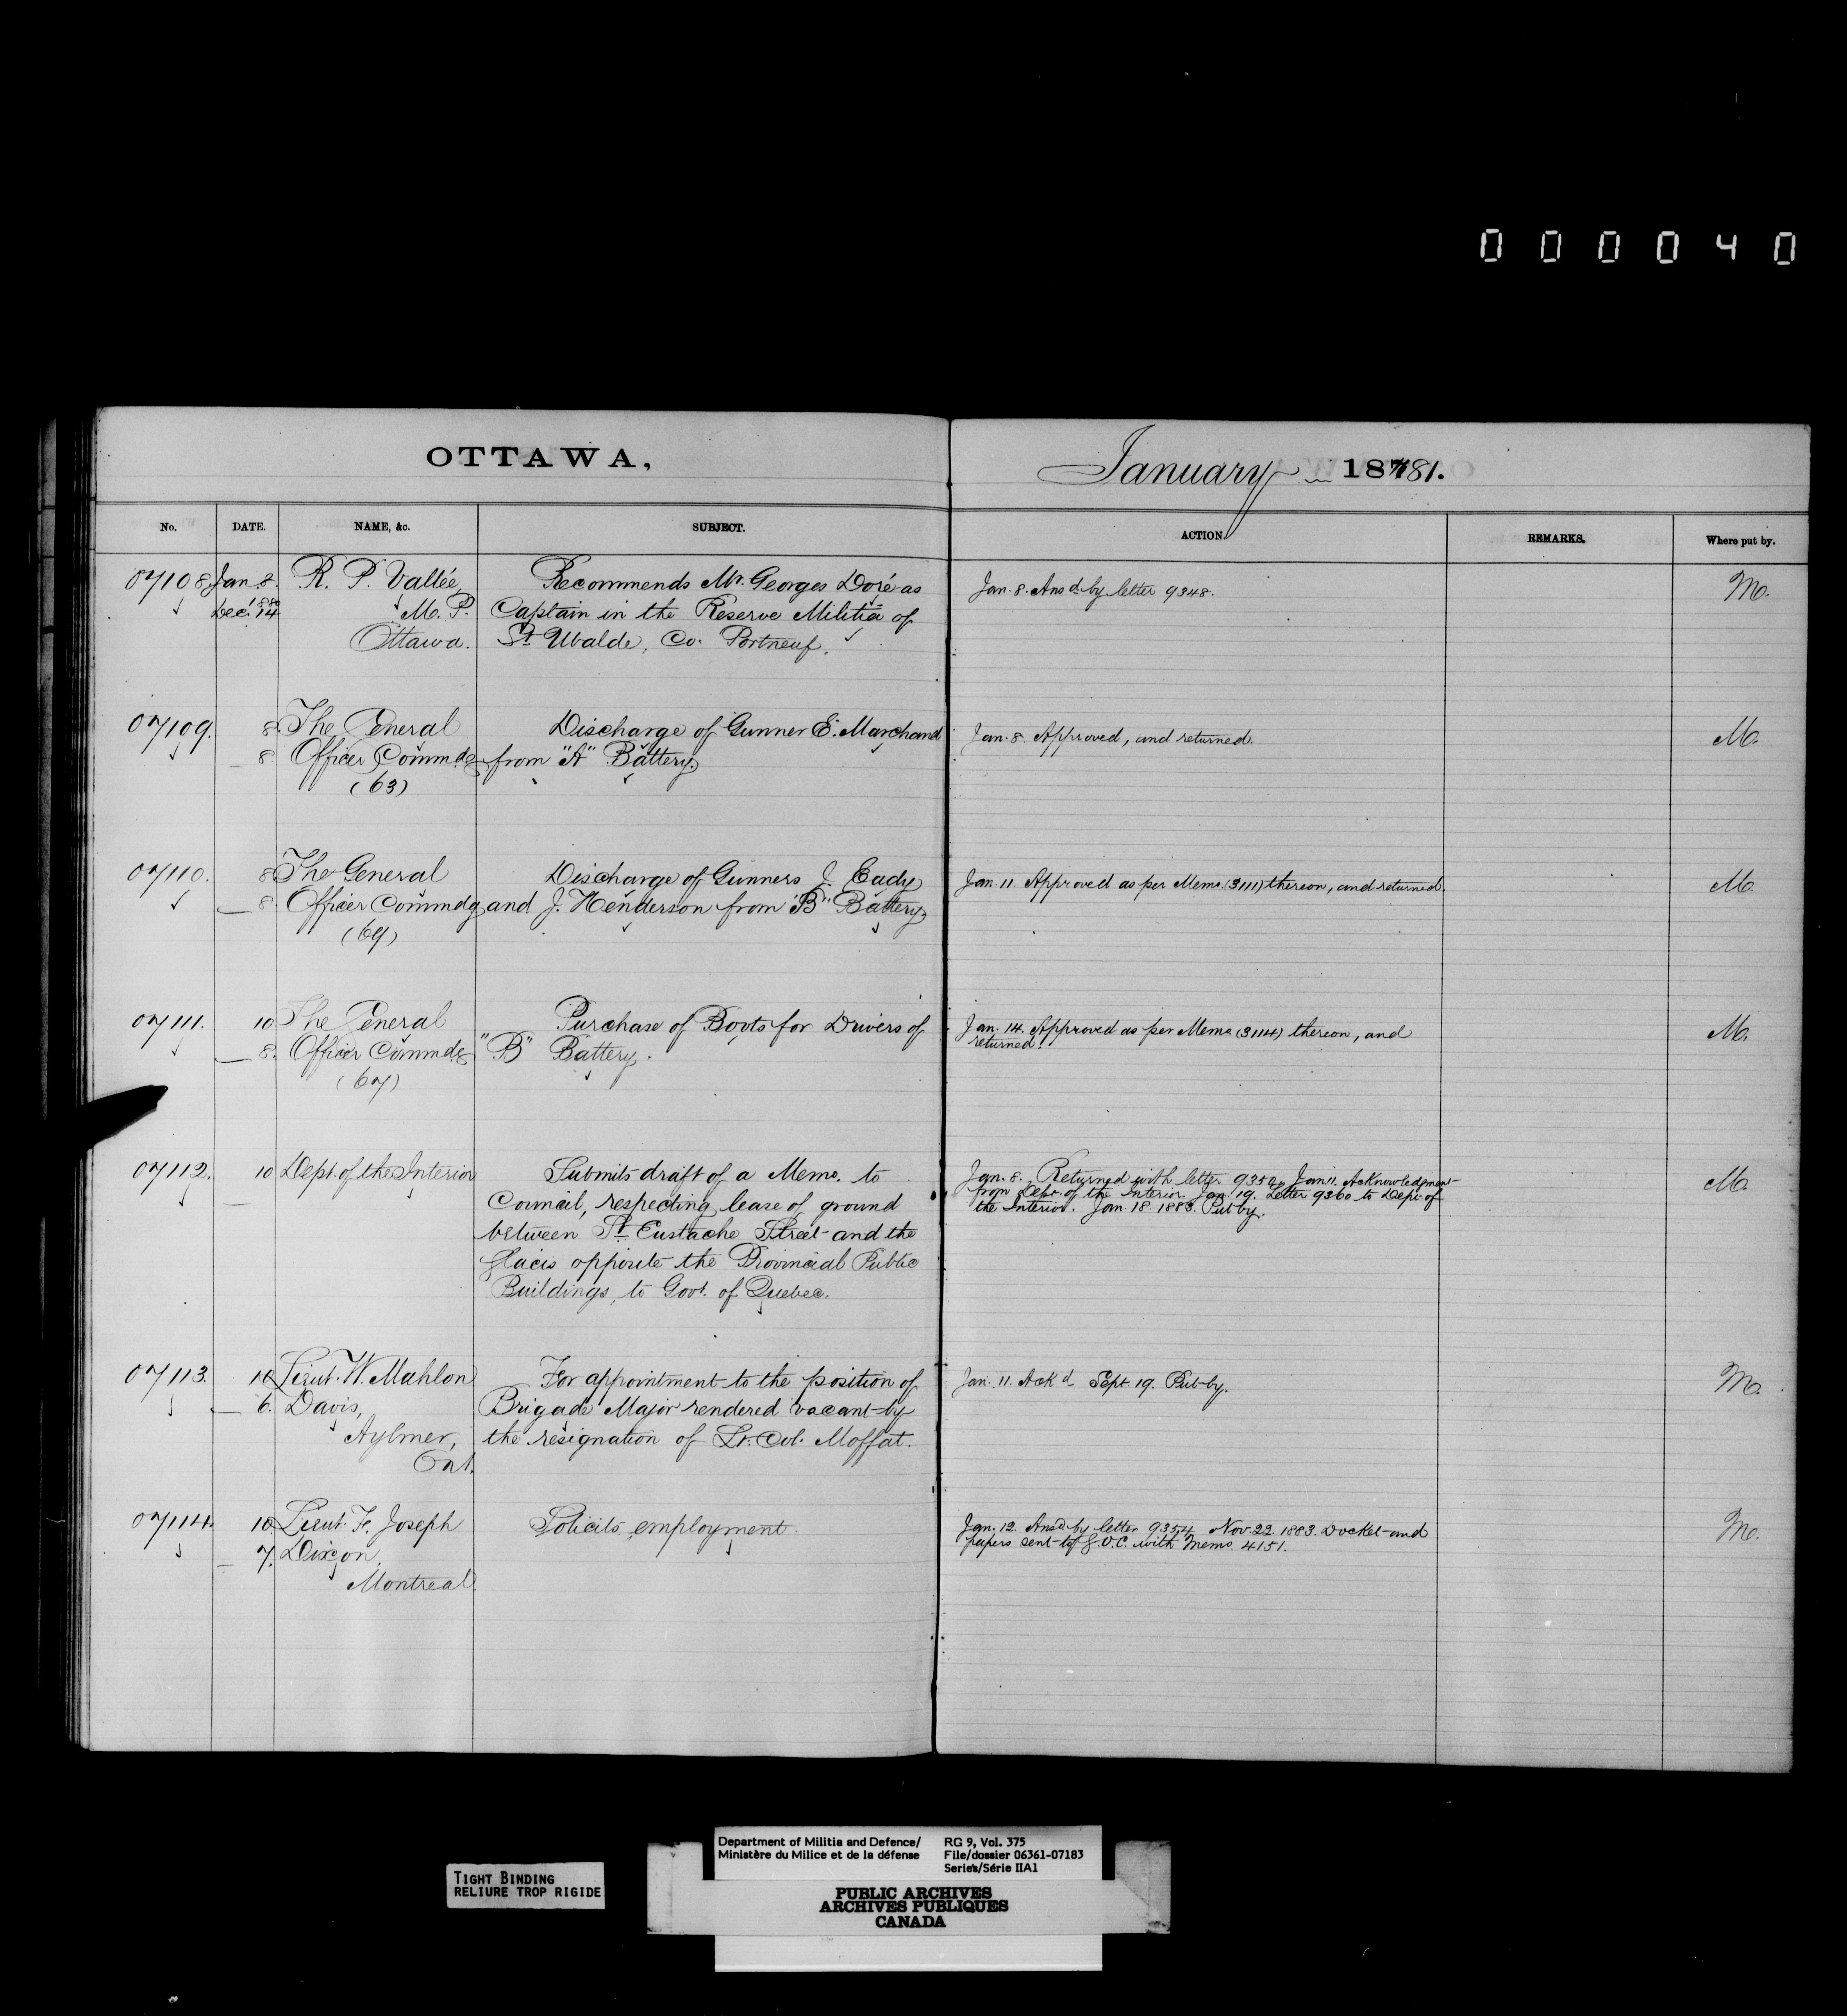 000040
OTTAWA,
January 1881.
No. DATE. NAME, &c. SUBJECT. ACTION. REMARKS. Where put by.
07108. Jan. 8. R. P. Vallée, Recommends Mr. Georges Doré as Jan. 8. Ansd by letter 9348. M.
1880 Dec. 14 M. P. Captain in the Reserve Militia of
Ottawa. St Ubalde, Co. Portneuf.
07109. 8. The General Discharge of Gunner E. Marchand Jan. 8. Approved, and returned. M.
8. Officer Commdg from "A" Battery.
(63)
07110. 8 The General Discharge of Gunners J. Eady Jan. 11. Approved as per Memo. (3111) thereon, and returned. M.
8. Officer Commdg and J. Henderson from "B" Battery.
(69)
07111. 10 The General Purchase of Boots for Drivers of Jan. 14. Approved as per Memo (3114) thereon, and M.
8. Officer Commdg "B" Battery. returned.
(67)
07112. 10 Dept. of the Interior Submits draft of a Memo. to Jan. 8. Returned with letter 9350. Jan 11. Acknowledgment M.
Council, respecting lease of ground from Dept. of the Interior. Jan. 19. Letter 9360 to Dept. of
between St Eustache Street and the the Interior. Jan. 18. 1883. Put by.
glacis opposite the Provincial Public
Buildings, to Govt. of Quebec.
07113. 10 Lieut. W. Mahlon For appointment to the position of Jan. 11. Ackd Sept. 19. Put by. M.
6. Davis, Brigade Major rendered vacant by
Aylmer, the resignation of Lt. Col. Moffat.
Ont.
07114. 10 Lieut. F. Joseph Solicits employment. Jan. 12. Ansd by letter 9354. Nov. 22. 1883. Docket and M.
7. Dixon, papers sent to G.O.C. with Memo. 4151.
Montreal.
TIGHT BINDING
RELIURE TROP RIGIDE
Department of Militia and Defence/ RG 9, Vol. 375
Ministère du Milice et de la défense File/dossier 06361-07183
Series/Série IIA1
PUBLIC ARCHIVES
ARCHIVES PUBLIQUES
CANADA